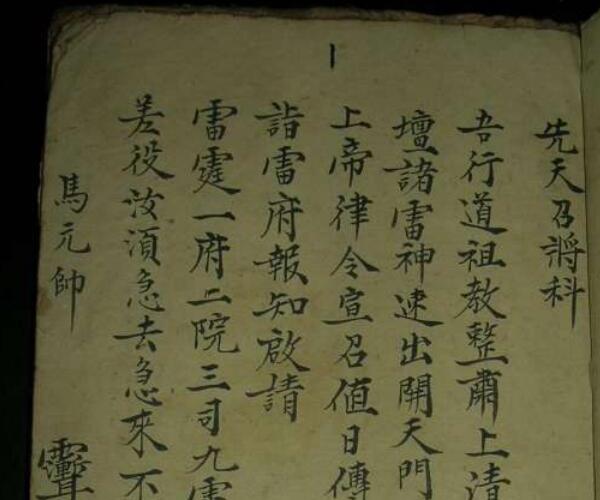 先天召將科
吾行道祖教整肅上清
壇諸雷神速出開天門
上帝律令宣召值日傳
詣雷府報知啟請
雷霆一府二院三司九雷
差役汝須急去急來不
馬元帥